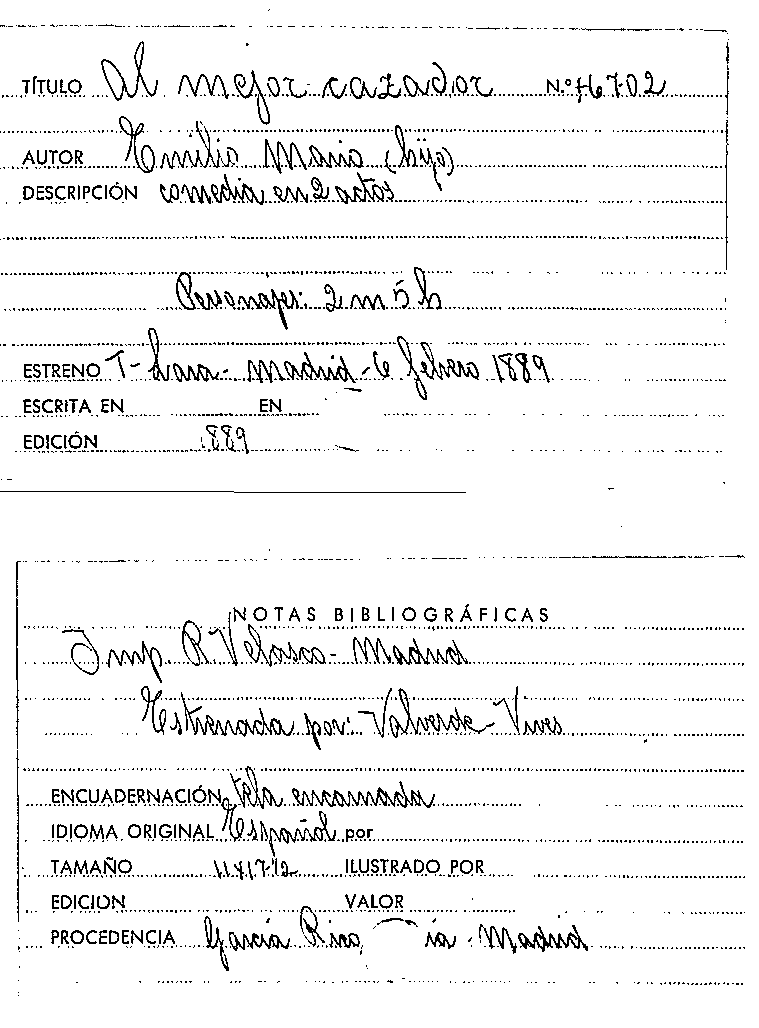 TÍTULO Al mejor cazador N.º 76702
AUTOR Emilio Mario (hijo)
DESCRIPCIÓN comedia en 2 actos
Personajes: 2 m 5 h
ESTRENO T- Lara - Madrid - 6 febrero 1889
ESCRITA EN EN
EDICIÓN 1889
NOTAS BIBLIOGRÁFICAS
Imp. R Velasco - Madrid
Estrenada por: Valverde - Vives
ENCUADERNACIÓN tela encarnada
IDIOMA ORIGINAL Español por
TAMAÑO ILUSTRADO POR
EDICION VALOR
PROCEDENCIA García Rico, Madrid